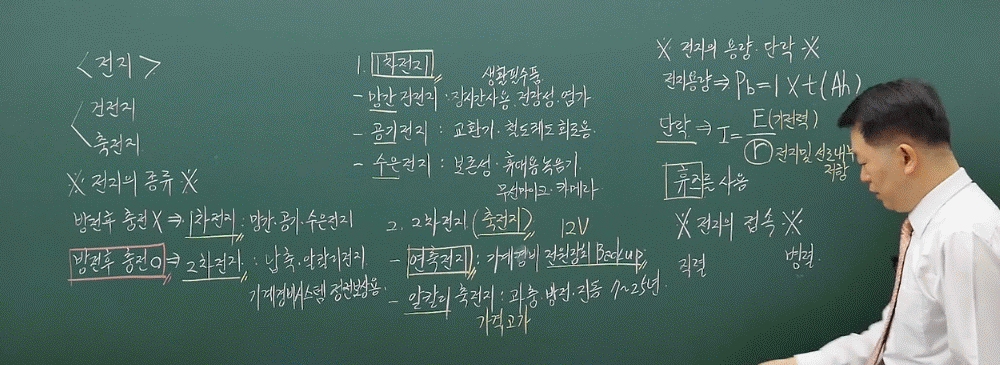 <전지>
건전지
축전지
※ 전지의 종류 ※
방전후 충전 X ⇒ 1차전지 : 망간·공기·수은전지
방전후 충전 O ⇒ 2차전지 : 납축·알칼리전지
기계경비시스템 정전보상용
1. 1차전지
생활필수품
- 망간 건전지 : 장시간사용·저장성·염가
- 공기전지 : 교환기·철도궤도회로용
- 수은전지 : 보존성·휴대용녹음기
무선마이크·카메라
2. 2차전지 (축전지) 12V
- 연축전지 : 기계경비 전원장치 Back up
- 알칼리 축전지 : 과충·방전·진동 7~25년
가격고가
※ 전지의 용량·단락 ※
전지용량 ⇒ Pb = I × t (Ah)
단락 ⇒ I = E (기전력) / r 전지및 선로내부
저항
휴즈를 사용
※ 전지의 접속 ※
직렬 병렬